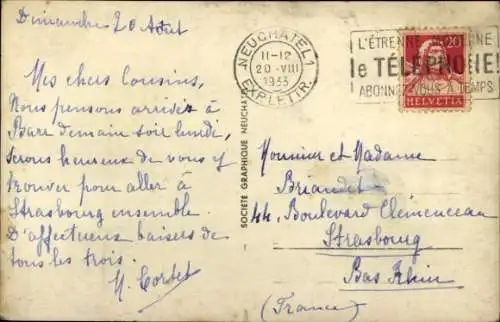 Dimanche 20 Août
Mes chers Cousins,
Nous pensons arriver à
Barr demain soir lundi,
serons heureux de vous y
trouver pour aller à
Strasbourg ensemble.
D'affectueux baisers de
tous les trois.
NEUCHATEL 1
11-12
20 -VIII
1933
EXP. LETTR.
L'ÉTRENNE
le TÉLÉPHONE!
ABONNEZ-VOUS À TEMPS
20
HELVETIA
SOCIÉTÉ GRAPHIQUE NEUCHATEL
Monsieur et Madame
Briandet
44, Boulevard Clémenceau
Strasbourg
Bas Rhin
(France)